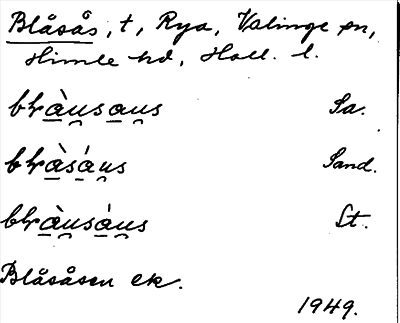 Blåsås, t, Rya, Valinge sn,
Himle hd, Hall. l.
blràu̯sau̯s Sa.
blràsáu̯s Sand.
blràu̯sáu̯s St.
Blåsåsen ek.
1949.